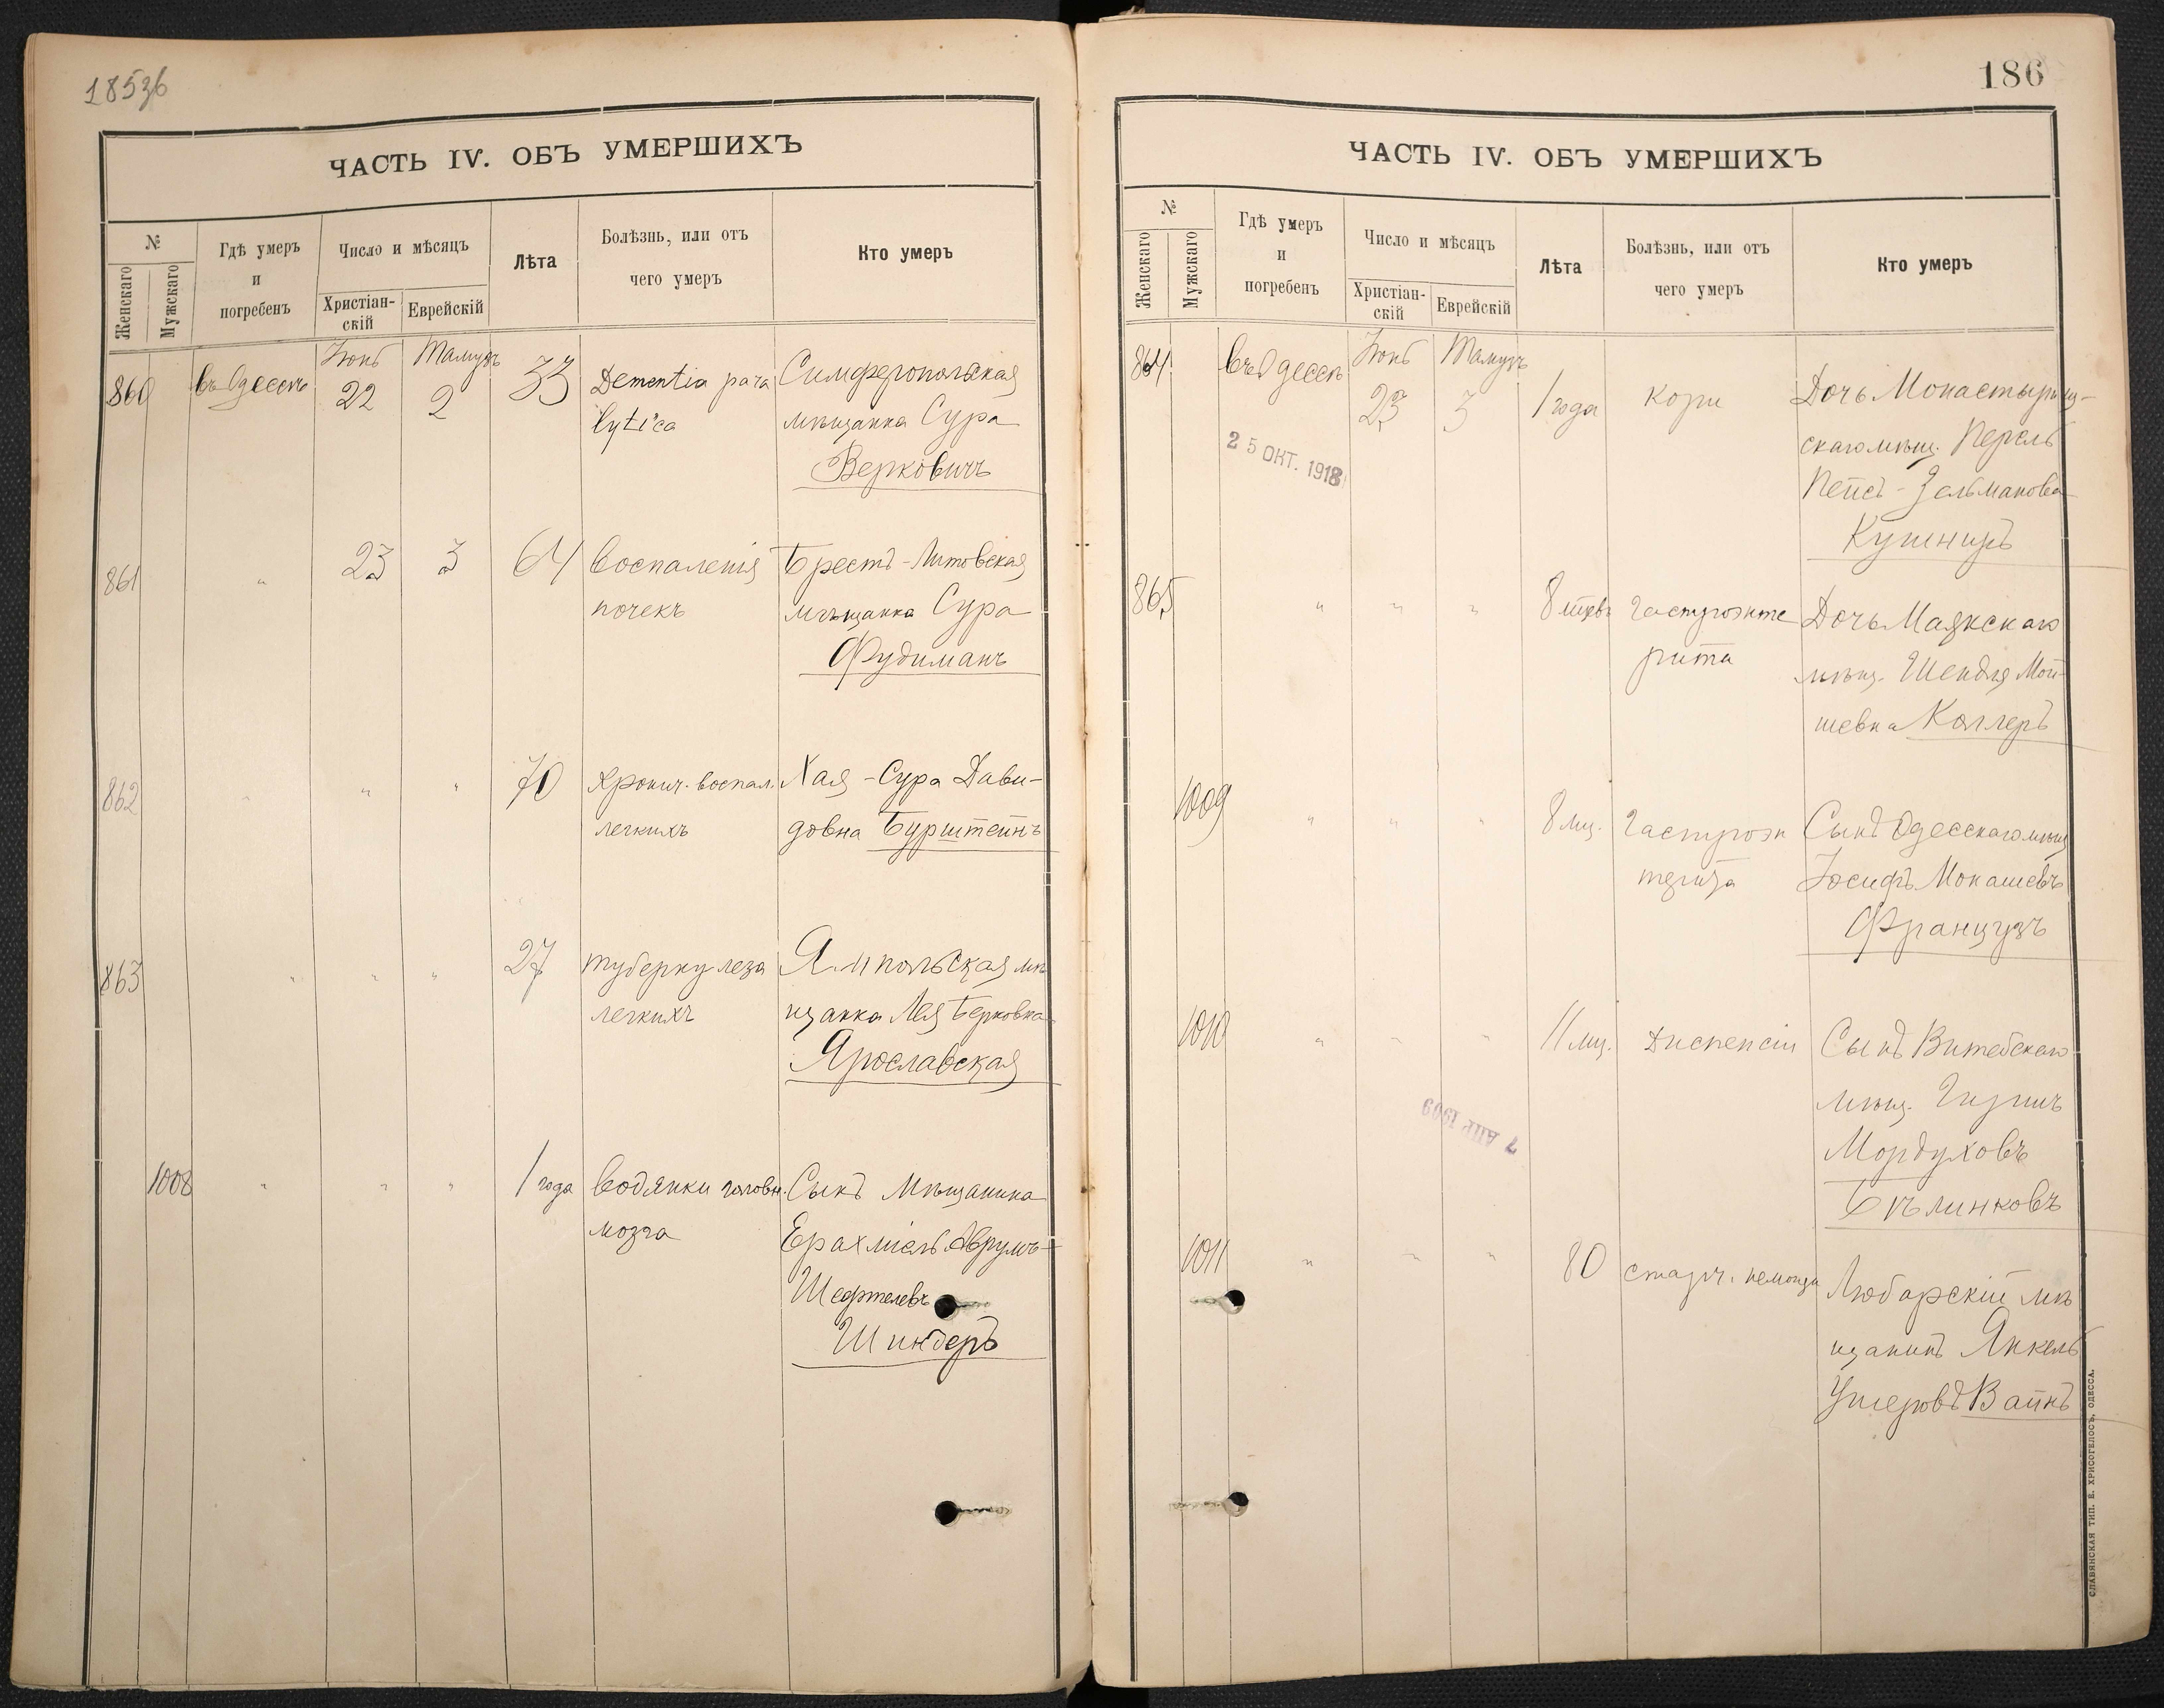 1853б
ЧАСТЬ IV. ОБЪ УМЕРШИХЪ
№
Женскаго
Мужскаго
Гдѣ умеръ
и
погребенъ
Число и мѣсяцъ
Христіан-
скій
Еврейскій
Лѣта
Болѣзнь, или отъ
чего умеръ
Кто умеръ
860 въ Одессѣ Іюнь 22 Тамузъ 2 33 Dementia para Симферопольская
lytica мѣщанка Сура
Верковичъ
861 " 23 3 64 воспаленія Брестъ-Литовская
почекъ мѣщанка Сура
Фудиманъ
862 " " " 70 хронич. воспал. Хая-Сура Дави-
легкихъ довна Бурштейнъ
863 " " " 27 туберкулеза Ямпольская мѣ
легкихъ щанка Лея Берковна
Ярославская
1008 " " " 1 года водянки головн. Сынъ мѣщанина
мозга Ерахміель Аврумъ-
Шефтелевъ
Шиндеръ
186
ЧАСТЬ IV. ОБЪ УМЕРШИХЪ
№
Женскаго
Мужскаго
Гдѣ умеръ
и
погребенъ
Число и мѣсяцъ
Христіан-
скій
Еврейскій
Лѣта
Болѣзнь, или отъ
чего умеръ
Кто умеръ
864 въ Одессѣ Іюнь 23 Тамузъ 3 1 года кори Дочь Монастырищ-
скаго мѣщ. Перель
25 ОКТ. 1918
Пейсъ-Зельманова
Купеницъ
865 " " " 8 мцевъ гастроэнте Дочь Маякскаго
рита мѣщ. Шендля Мой
шевна Коллеръ
1009 " " " 8 мц. гастроэн Сынъ Одесскаго мѣщ
терита Іосифъ Монашевъ
Французъ
1010 " " " 11 мц. диспепсіи Сынъ Витебскаго
мѣщ.
7 АПР 1909
Мордуховъ
Бѣлинковъ
1011 " " " 80 старч. немощи Любарскій мѣ
щанинъ Янкель
Ушеровъ Вайнъ
СЛАВЯНСКАЯ ТИП. Е. ХРИСОГЕЛОСЪ, ОДЕССА.